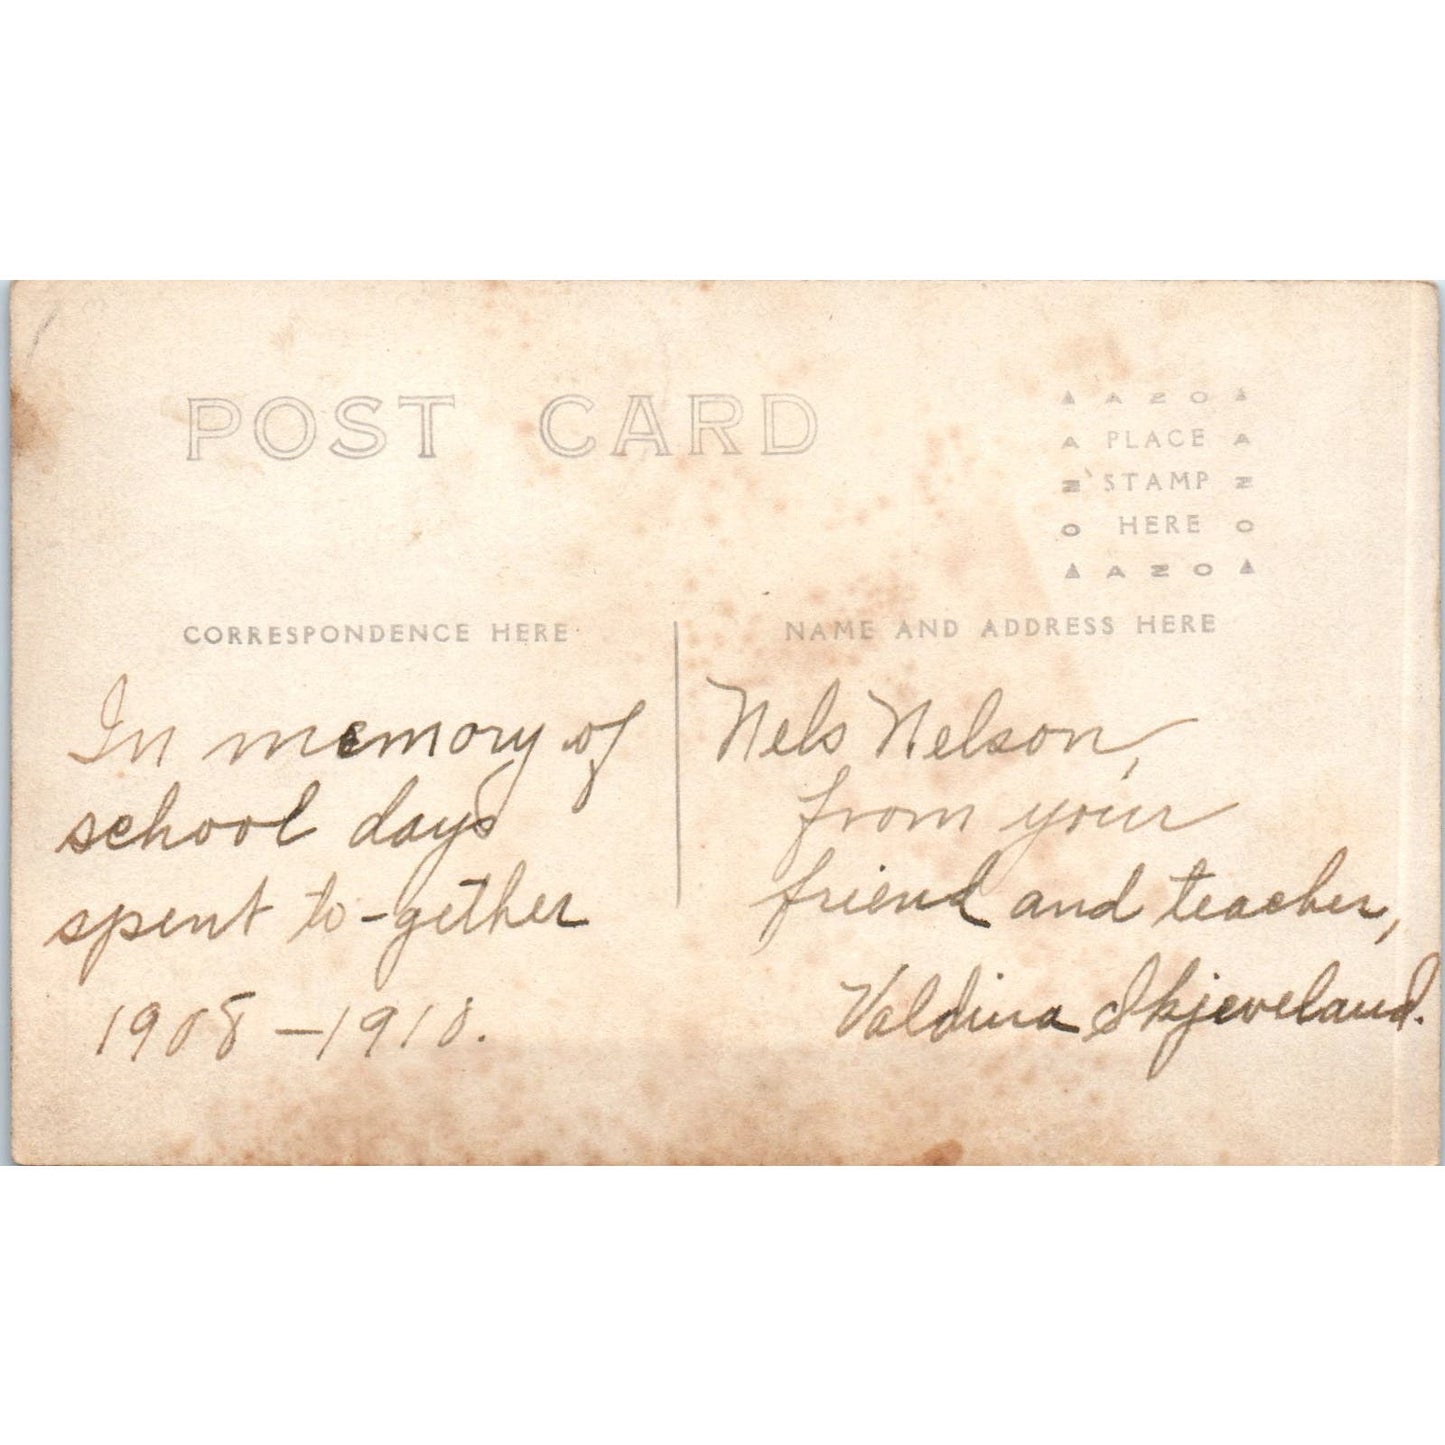 POST CARD
▲ A Z O ▲
A PLACE A
Z STAMP Z
O HERE O
▲ A Z O ▲
CORRESPONDENCE HERE
In memory of
school days
spent to-gether
1908-1910.
NAME AND ADDRESS HERE
Nels Nelson,
from your
friend and teacher,
Valdina Skjeveland.